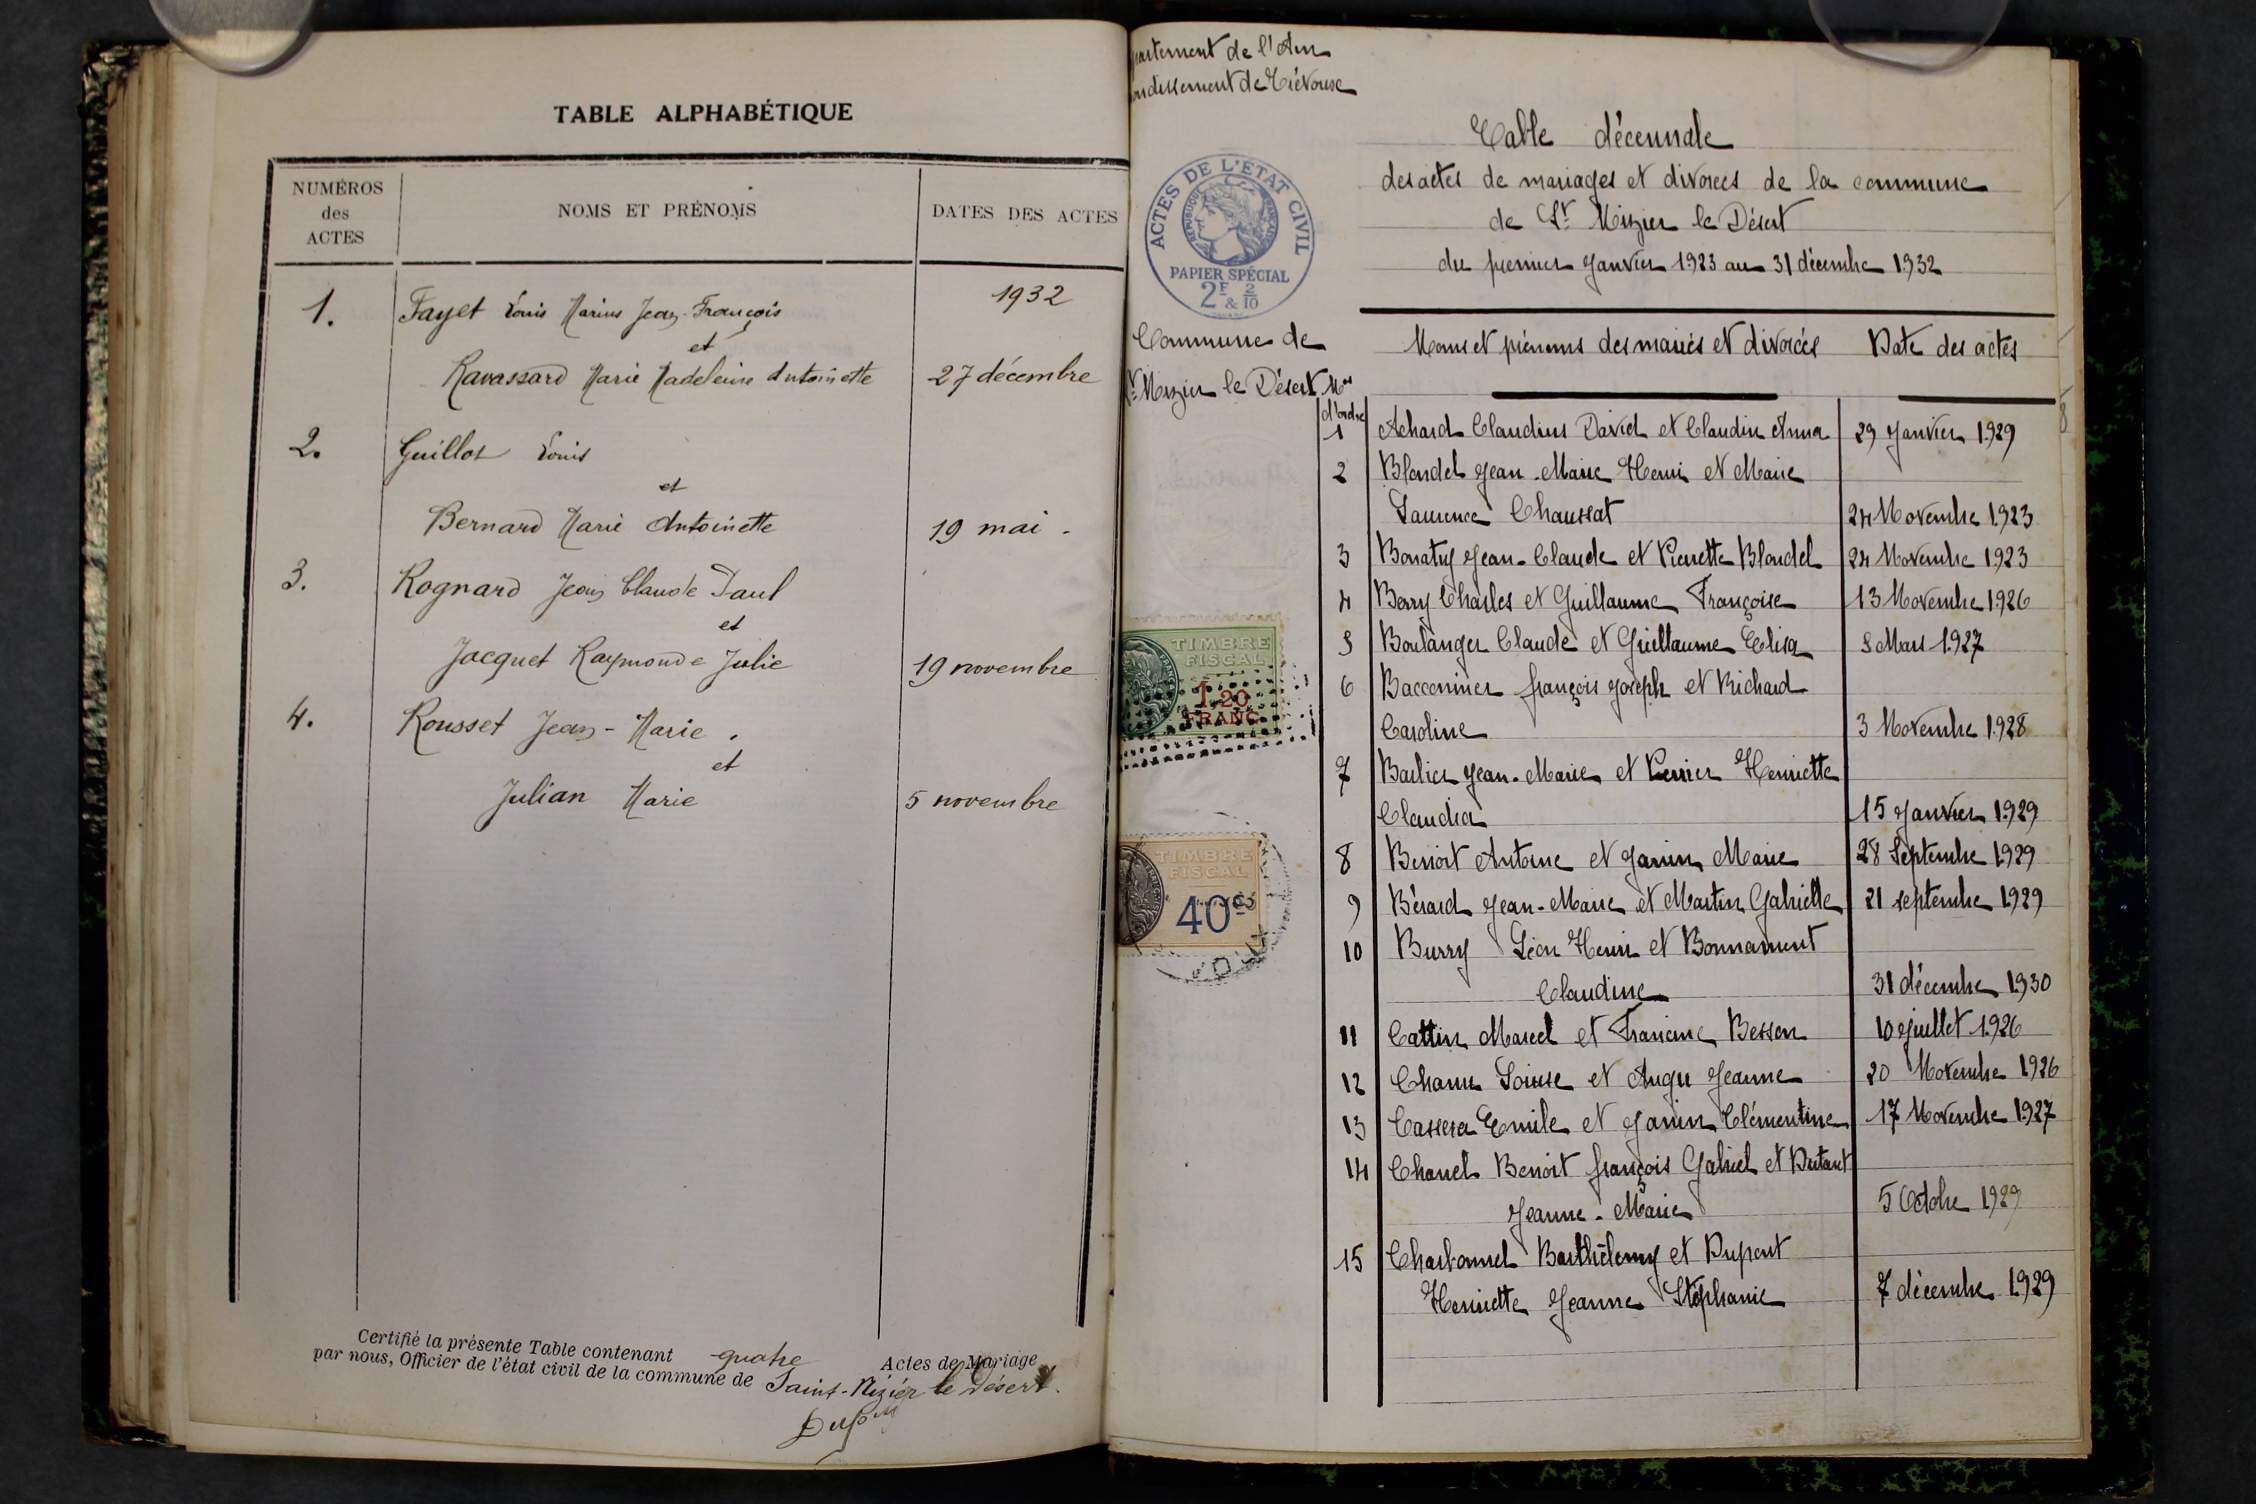 TABLE ALPHABÉTIQUE
NUMÉROS
des
ACTES
NOMS ET PRÉNOMS
DATES DES ACTES
1932
1. Fayet Louis Marius Jean-François
et
Ravassard Marie Madeleine Antoinette 27 décembre
2. Guillot Louis
et
Bernard Marie Antoinette 19 mai -
3. Rognard Jean Claude Paul
et
Jacquet Raymonde Julie 19 novembre
4. Rousset Jean-Marie.
et
Julian Marie 5 novembre
Certifié la présente Table contenant quatre Actes de Mariage
par nous, Officier de l'état civil de la commune de Saint-Nizier le Désert.
partement de l'Ain
ondissement de Trévoux
Table décennale
des actes de mariages et divorces de la commune
de St Nizier le Désert
du premier Janvier 1923 au 31 décembre 1932
ACTES DE L'ÉTAT CIVIL
RÉPUBLIQUE FRANÇAISE
PAPIER SPÉCIAL
2F & 2/10
Commune de
St Nizier le Désert
Nos
d'ordre
Noms et prénoms des mariés et divorcés
Date des actes
1 Achard Claudius David et Claudin Anna 29 Janvier 1929
2 Blondel Jean-Marie Henri et Marie
Laurence Chaussat 24 Novembre 1923
3 Bonatry Jean-Claude et Pierrette Blondel 24 Novembre 1923
4 Berry Charles et Guillaume Françoise 13 Novembre 1926
5 Boulanger Claude et Guillaume Elisa Mars 1927
6 François Joseph et Richard
Caroline 3 Novembre 1928
7 Barlier Jean-Marie et Perrier Henriette
Claudia 15 Janvier 1929
8 Benoit Antoine et Janin Marie 28 Septembre 1929
9 Bérard Jean-Marie et Martin Gabrielle 21 septembre 1929
10 Burry Léon Henri et Bonnamont
Claudine 31 décembre 1930
11 Cattin Marcel et Francine Besson 10 Juillet 1926
12 Chanu Louise et Jeanne 20 Novembre 1926
13 Emile et Janin Clémentine 17 Novembre 1927
14 Chanel Benoit François Gabriel et
Jeanne-Marie 5 Octobre 1929
15 Charbonnel Barthélemy et Dupont
Henriette Jeanne Stéphanie 7 décembre 1929
TIMBRE
FISCAL
1,20
FRANC
TIMBRE
FISCAL
40c